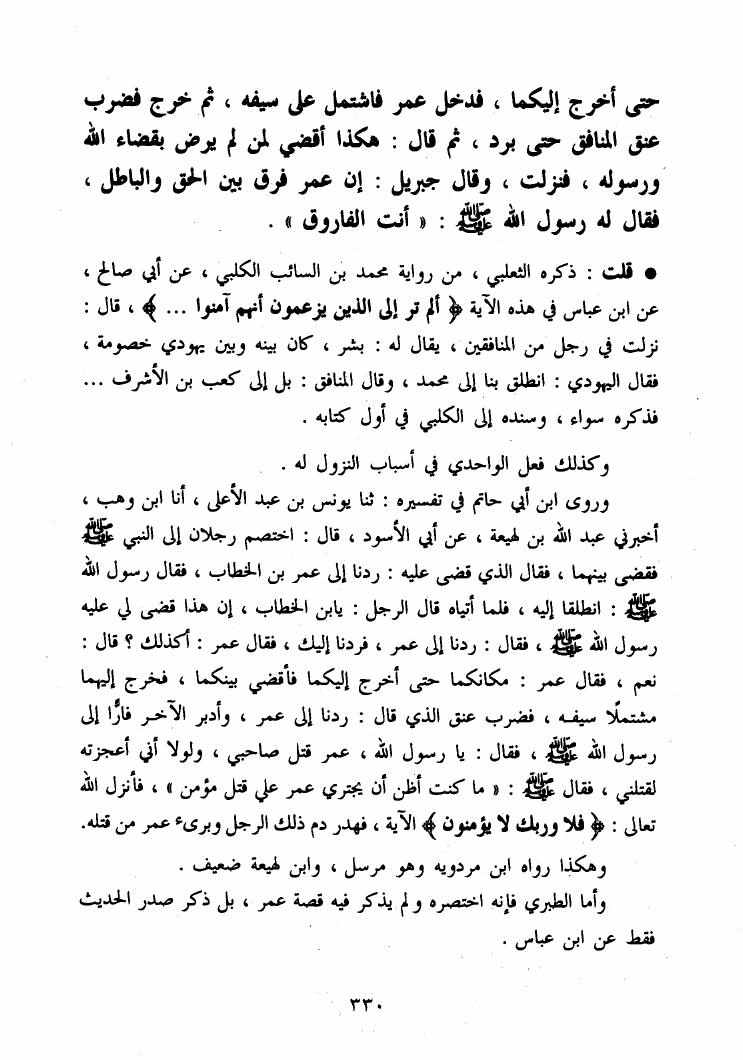 حتى أخرج إليكما ، فدخل عمر فاشتمل على سيفه ، ثم خرج فضرب
عنق المنافق حتى برد ، ثم قال : هكذا أقضي لمن لم يرض بقضاء الله
ورسوله ، فنزلت ، وقال جبريل : إن عمر فرق بين الحق والباطل ،
فقال له رسول الله ﷺ : « أنت الفاروق » .
● قلت : ذكره الثعلبي ، من رواية محمد بن السائب الكلبي ، عن أبي صالح ،
عن ابن عباس في هذه الآية ﴿ ألم تر إلى الذين يزعمون أنهم آمنوا ... ﴾ ، قال :
نزلت في رجل من المنافقين ، يقال له : بشر ، كان بينه وبين يهودي خصومة ،
فقال اليهودي : انطلق بنا إلى محمد ، وقال المنافق : بل إلى كعب بن الأشرف ...
فذكره سواء ، وسنده إلى الكلبي في أول كتابه .
وكذلك فعل الواحدي في أسباب النزول له .
وروى ابن أبي حاتم في تفسيره : ثنا يونس بن عبد الأعلى ، أنا ابن وهب ،
أخبرني عبد الله بن لهيعة ، عن أبي الأسود ، قال : اختصم رجلان إلى النبي ﷺ
فقضى بينهما ، فقال الذي قضى عليه : ردنا إلى عمر بن الخطاب ، فقال رسول الله
ﷺ : انطلقا إليه ، فلما أتياه قال الرجل : يابن الخطاب ، إن هذا قضى لي عليه
رسول الله ﷺ ، فقال : ردنا إلى عمر ، فردنا إليك ، فقال عمر : أكذلك ؟ قال :
نعم ، فقال عمر : مكانكما حتى أخرج إليكما فأقضي بينكما ، فخرج إليهما
مشتملًا سيفه ، فضرب عنق الذي قال : ردنا إلى عمر ، وأدبر الآخر فارًّا إلى
رسول الله ﷺ ، فقال : يا رسول الله ، عمر قتل صاحبي ، ولولا أني أعجزته
لقتلني ، فقال ﷺ : « ما كنت أظن أن يجتري عمر علي قتل مؤمن » ، فأنزل الله
تعالى : ﴿ فلا وربك لا يؤمنون ﴾ الآية ، فهدر دم ذلك الرجل وبرىء عمر من قتله.
وهكذا رواه ابن مردويه وهو مرسل ، وابن لهيعة ضعيف .
وأما الطبري فإنه اختصره ولم يذكر فيه قصة عمر ، بل ذكر صدر الحديث
فقط عن ابن عباس .
٣٣٠